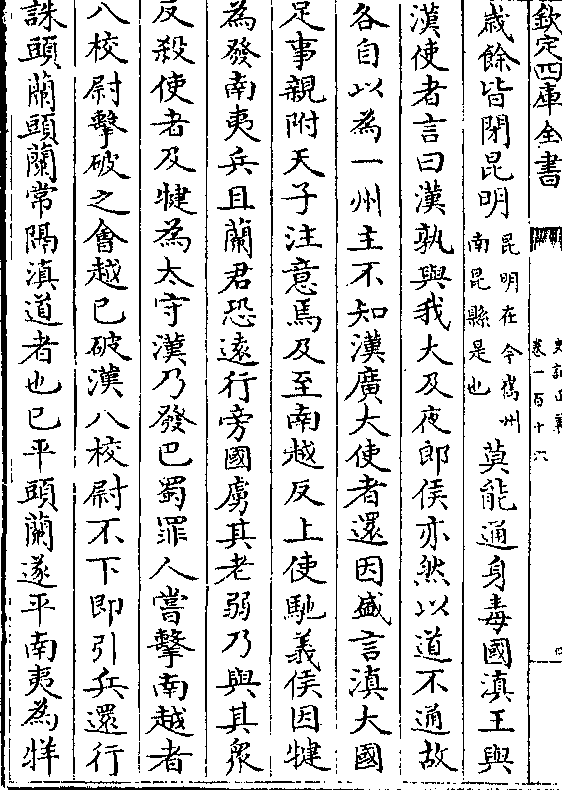 欽定四庫全書
史記正義
卷一百十六
歲餘皆閉昆明
昆明在今嶲州
南昆縣是也
莫能通身毒國滇王與
漢使者言曰漢孰與我大及夜郎侯亦然以道不通故
各自以為一州主不知漢廣大使者還因盛言滇大國
足事親附天子注意焉及至南越反上使馳義侯因犍
為發南夷兵且蘭君恐遠行旁國虜其老弱乃與其衆
反殺使者及犍為太守漢乃發巴蜀罪人嘗擊南越者
八校尉擊破之會越已破漢八校尉不下即引兵還行
誅頭蘭頭蘭常隔滇道者也已平頭蘭遂平南夷為牂